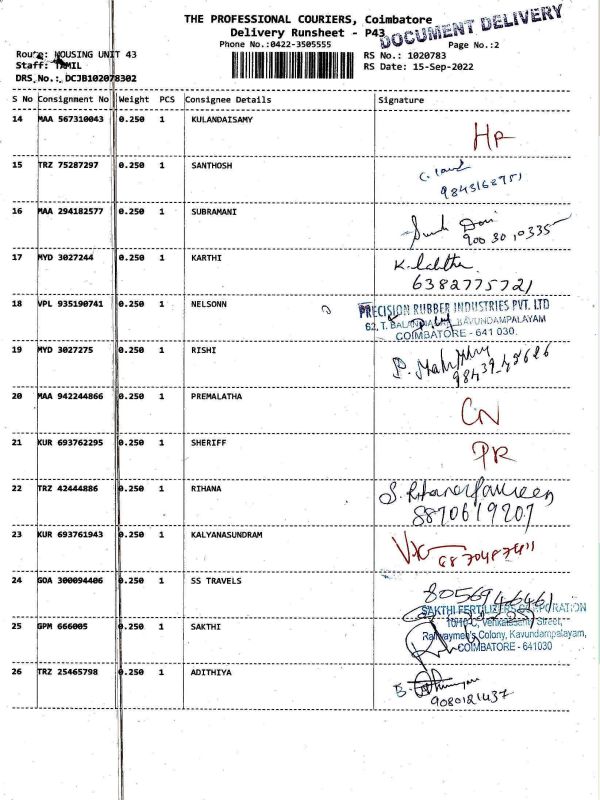 THE PROFESSIONAL COURIERS, Coimbatore
Delivery Runsheet - P43
DOCUMENT DELIVERY
Phone No.:0422-3505555
Page No.:2
Route: HOUSING UNIT 43
RS No.: 1020783
Staff: TAMIL
RS Date: 15-Sep-2022
DRS No.: DCJB102078302
S No Consignment No Weight PCS Consignee Details Signature
14 MAA 567310043 0.250 1 KULANDAISAMY
15 TRZ 75287297 0.250 1 SANTHOSH
9843168951
16 MAA 294182577 0.250 1 SUBRAMANI
900 30 10335
17 MYD 3027244 0.250 1 KARTHI
6382775721
18 VPL 935190741 0.250 1 NELSONN
PRECISION RUBBER INDUSTRIES PVT. LTD
KAVUNDAMPALAYAM
COIMBATORE - 641 030.
19 MYD 3027275 0.250 1 RISHI
20 MAA 942244866 0.250 1 PREMALATHA
CN
21 KUR 693762295 0.250 1 SHERIFF
PR
22 TRZ 42444886 0.250 1 RIHANA
8870619207
23 KUR 693761943 0.250 1 KALYANASUNDRAM
24 GOA 300094406 0.250 1 SS TRAVELS
8056946461
SAKTHI FERTILIZERS CORPORATION
Venkatasamy Street,
25 GPM 666005 0.250 1 SAKTHI
Railwaymen's Colony, Kavundampalayam,
COIMBATORE - 641030
26 TRZ 25465798 0.250 1 ADITHIYA
9080121437